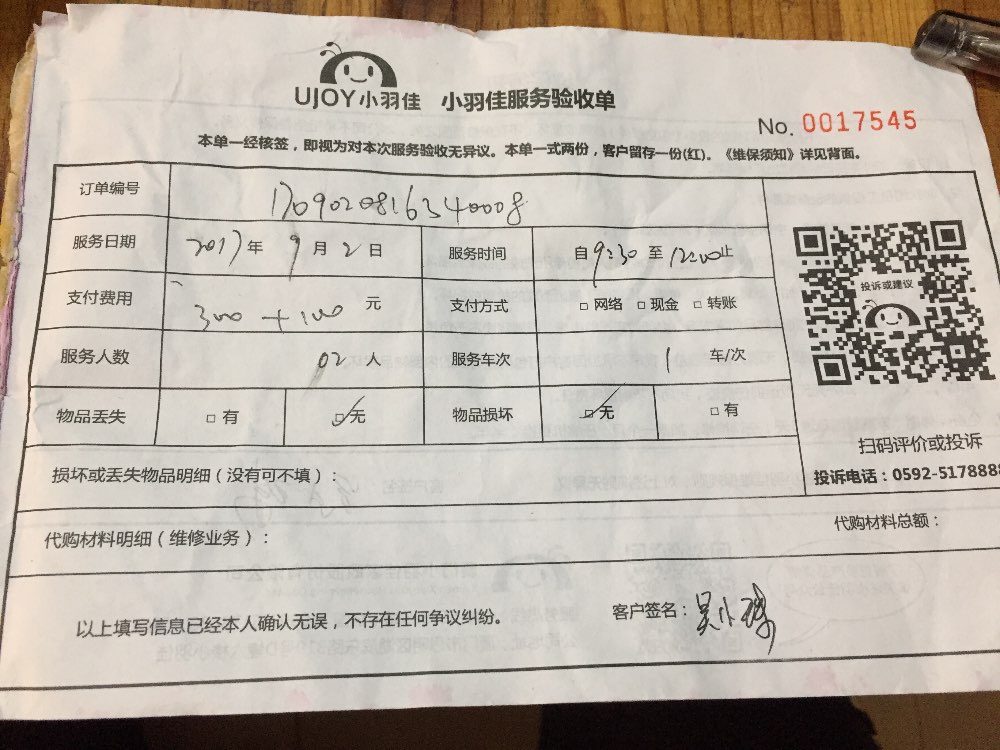 UJOY小羽佳 小羽佳服务验收单
No. 0017545
本单一经核签，即视为对本次服务验收无异议。本单一式两份，客户留存一份(红)。《维保须知》详见背面。
订单编号 1709020816340008
服务日期 2017年 9月 2日 服务时间 自9:30 至 12:00止
支付费用 300 + 100 元 支付方式 □ 网络 □ 现金 □ 转账
服务人数 02 人 服务车次 1 车/次
物品丢失 □ 有 ☑无 物品损坏 ☑无 □ 有
投诉或建议
扫码评价或投诉
投诉电话：0592-5178888
损坏或丢失物品明细（没有可不填）：
代购材料明细（维修业务）： 代购材料总额：
以上填写信息已经本人确认无误，不存在任何争议纠纷。 客户签名：